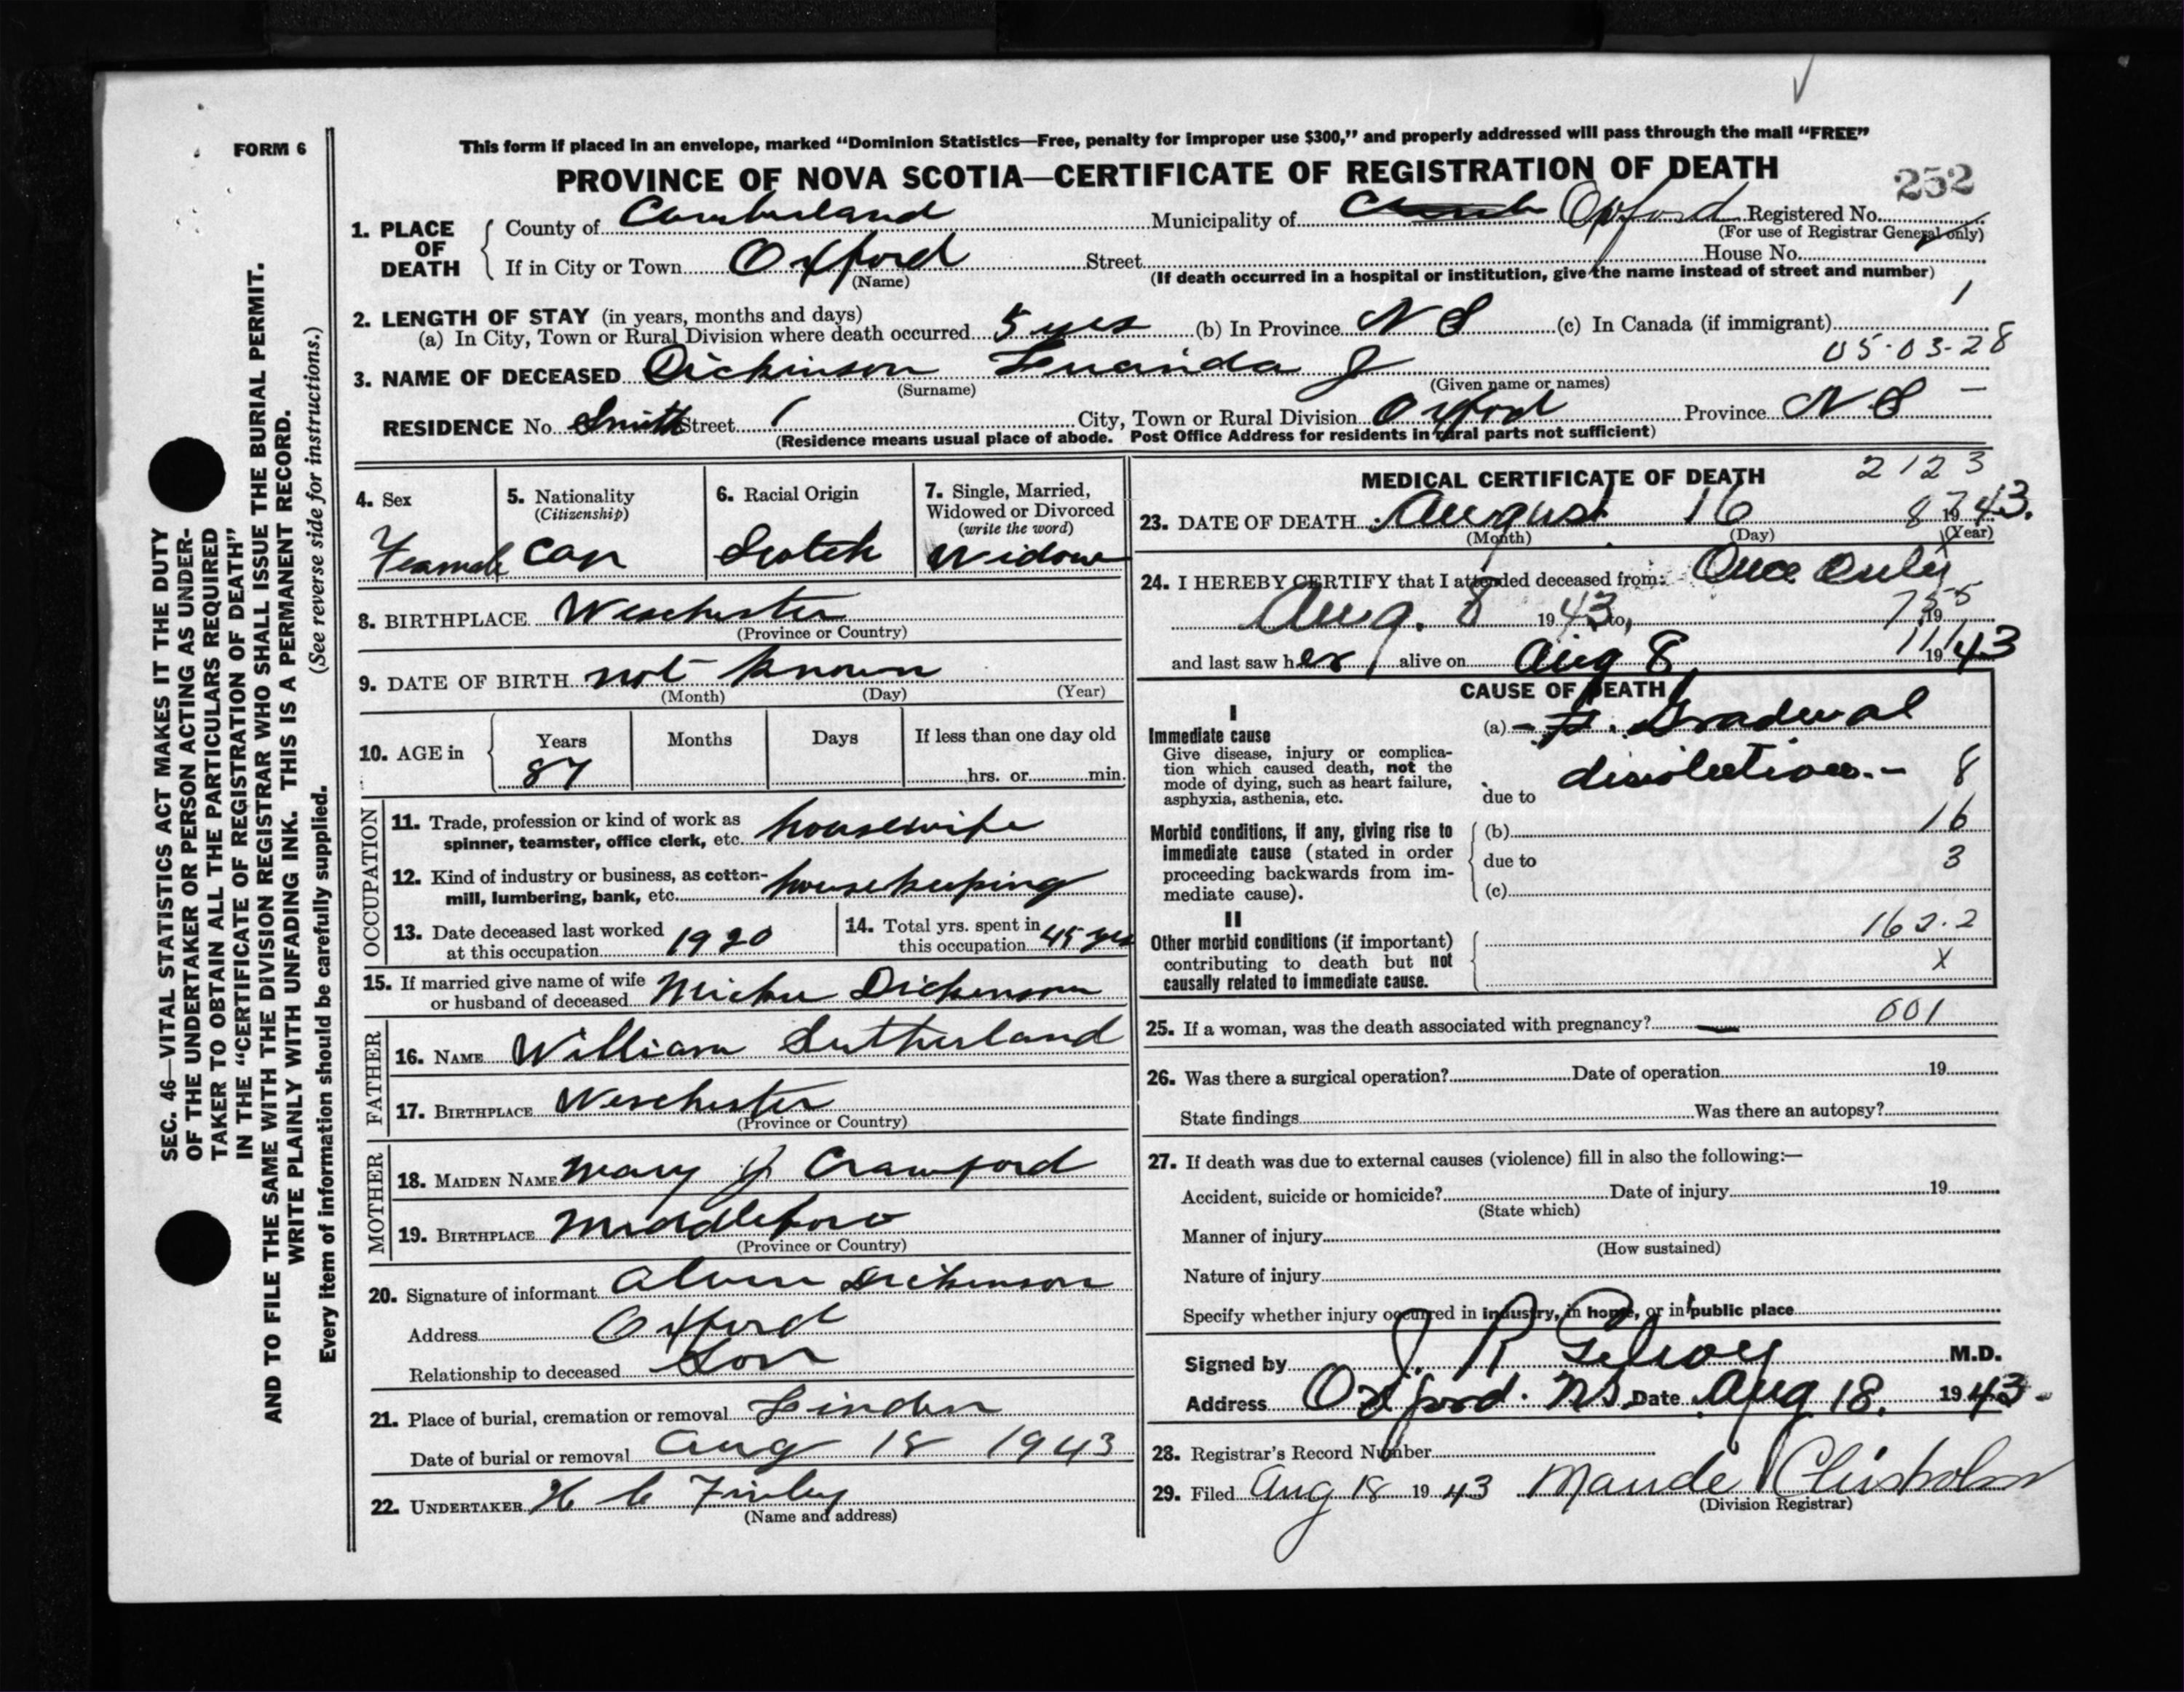 FORM 6
This form if placed in an envelope, marked “Dominion Statistics—Free, penalty for improper use $300,” and properly addressed will pass through the mail “FREE”
PROVINCE OF NOVA SCOTIA—CERTIFICATE OF REGISTRATION OF DEATH
252
1. PLACE OF DEATH
County of Cumberland Municipality of Oxford Registered No.
(For use of Registrar General only)
If in City or Town Oxford Street House No.
(Name) (If death occurred in a hospital or institution, give the name instead of street and number)
1
2. LENGTH OF STAY (in years, months and days)
(a) In City, Town or Rural Division where death occurred 5 yrs (b) In Province N S (c) In Canada (if immigrant)
05-03-28
3. NAME OF DECEASED Dickinson J
(Surname) (Given name or names)
RESIDENCE No. Smith Street City, Town or Rural Division Oxford Province N S —
(Residence means usual place of abode. Post Office Address for residents in rural parts not sufficient)
4. Sex
Feamale
5. Nationality
(Citizenship)
Can
6. Racial Origin
Scotch
7. Single, Married, Widowed or Divorced
(write the word)
Widow
8. BIRTHPLACE Weschester
(Province or Country)
9. DATE OF BIRTH not known
(Month) (Day) (Year)
10. AGE in
Years Months Days If less than one day old
87 hrs. or min.
OCCUPATION
11. Trade, profession or kind of work as
spinner, teamster, office clerk, etc. housewife
12. Kind of industry or business, as cotton-
mill, lumbering, bank, etc. housekeeping
13. Date deceased last worked
at this occupation 1920
14. Total yrs. spent in
this occupation 45 yrs
15. If married give name of wife
or husband of deceased Dickenson
FATHER
16. NAME William Sutherland
17. BIRTHPLACE Weschester
(Province or Country)
MOTHER
18. MAIDEN NAME Mary J Crawford
19. BIRTHPLACE Middleboro
(Province or Country)
20. Signature of informant Dickenson
Address Oxford
Relationship to deceased Son
21. Place of burial, cremation or removal Linden
Date of burial or removal Aug 18 1943
22. UNDERTAKER H C Finley
(Name and address)
MEDICAL CERTIFICATE OF DEATH
2123
23. DATE OF DEATH August 16 1943.
(Month) (Day) (Year)
24. I HEREBY CERTIFY that I attended deceased from: Once Only
Aug. 8 1943 to, 19
and last saw her alive on Aug 8 1943
CAUSE OF DEATH
I
Immediate cause
Give disease, injury or complica-
tion which caused death, not the
mode of dying, such as heart failure,
asphyxia, asthenia, etc.
(a) Gradual
8
due to
Morbid conditions, if any, giving rise to
immediate cause (stated in order
proceeding backwards from im-
mediate cause).
(b) 16
due to 3
(c)
II
Other morbid conditions (if important)
contributing to death but not
causally related to immediate cause.
162.2
X
25. If a woman, was the death associated with pregnancy? — 001
26. Was there a surgical operation? Date of operation 19
State findings Was there an autopsy?
27. If death was due to external causes (violence) fill in also the following:—
Accident, suicide or homicide? Date of injury 19
(State which)
Manner of injury
(How sustained)
Nature of injury
Specify whether injury occurred in industry, in home, or in public place
Signed by J. R. M.D.
Address Oxford. NS. Date Aug 18. 1943.
28. Registrar's Record Number
29. Filed Aug 18 1943 Maude Chisholm
(Division Registrar)
SEC. 46—VITAL STATISTICS ACT MAKES IT THE DUTY
OF THE UNDERTAKER OR PERSON ACTING AS UNDER-
TAKER TO OBTAIN ALL THE PARTICULARS REQUIRED
IN THE “CERTIFICATE OF REGISTRATION OF DEATH”
AND TO FILE THE SAME WITH THE DIVISION REGISTRAR WHO SHALL ISSUE THE BURIAL PERMIT.
WRITE PLAINLY WITH UNFADING INK. THIS IS A PERMANENT RECORD.
Every item of information should be carefully supplied. (See reverse side for instructions.)